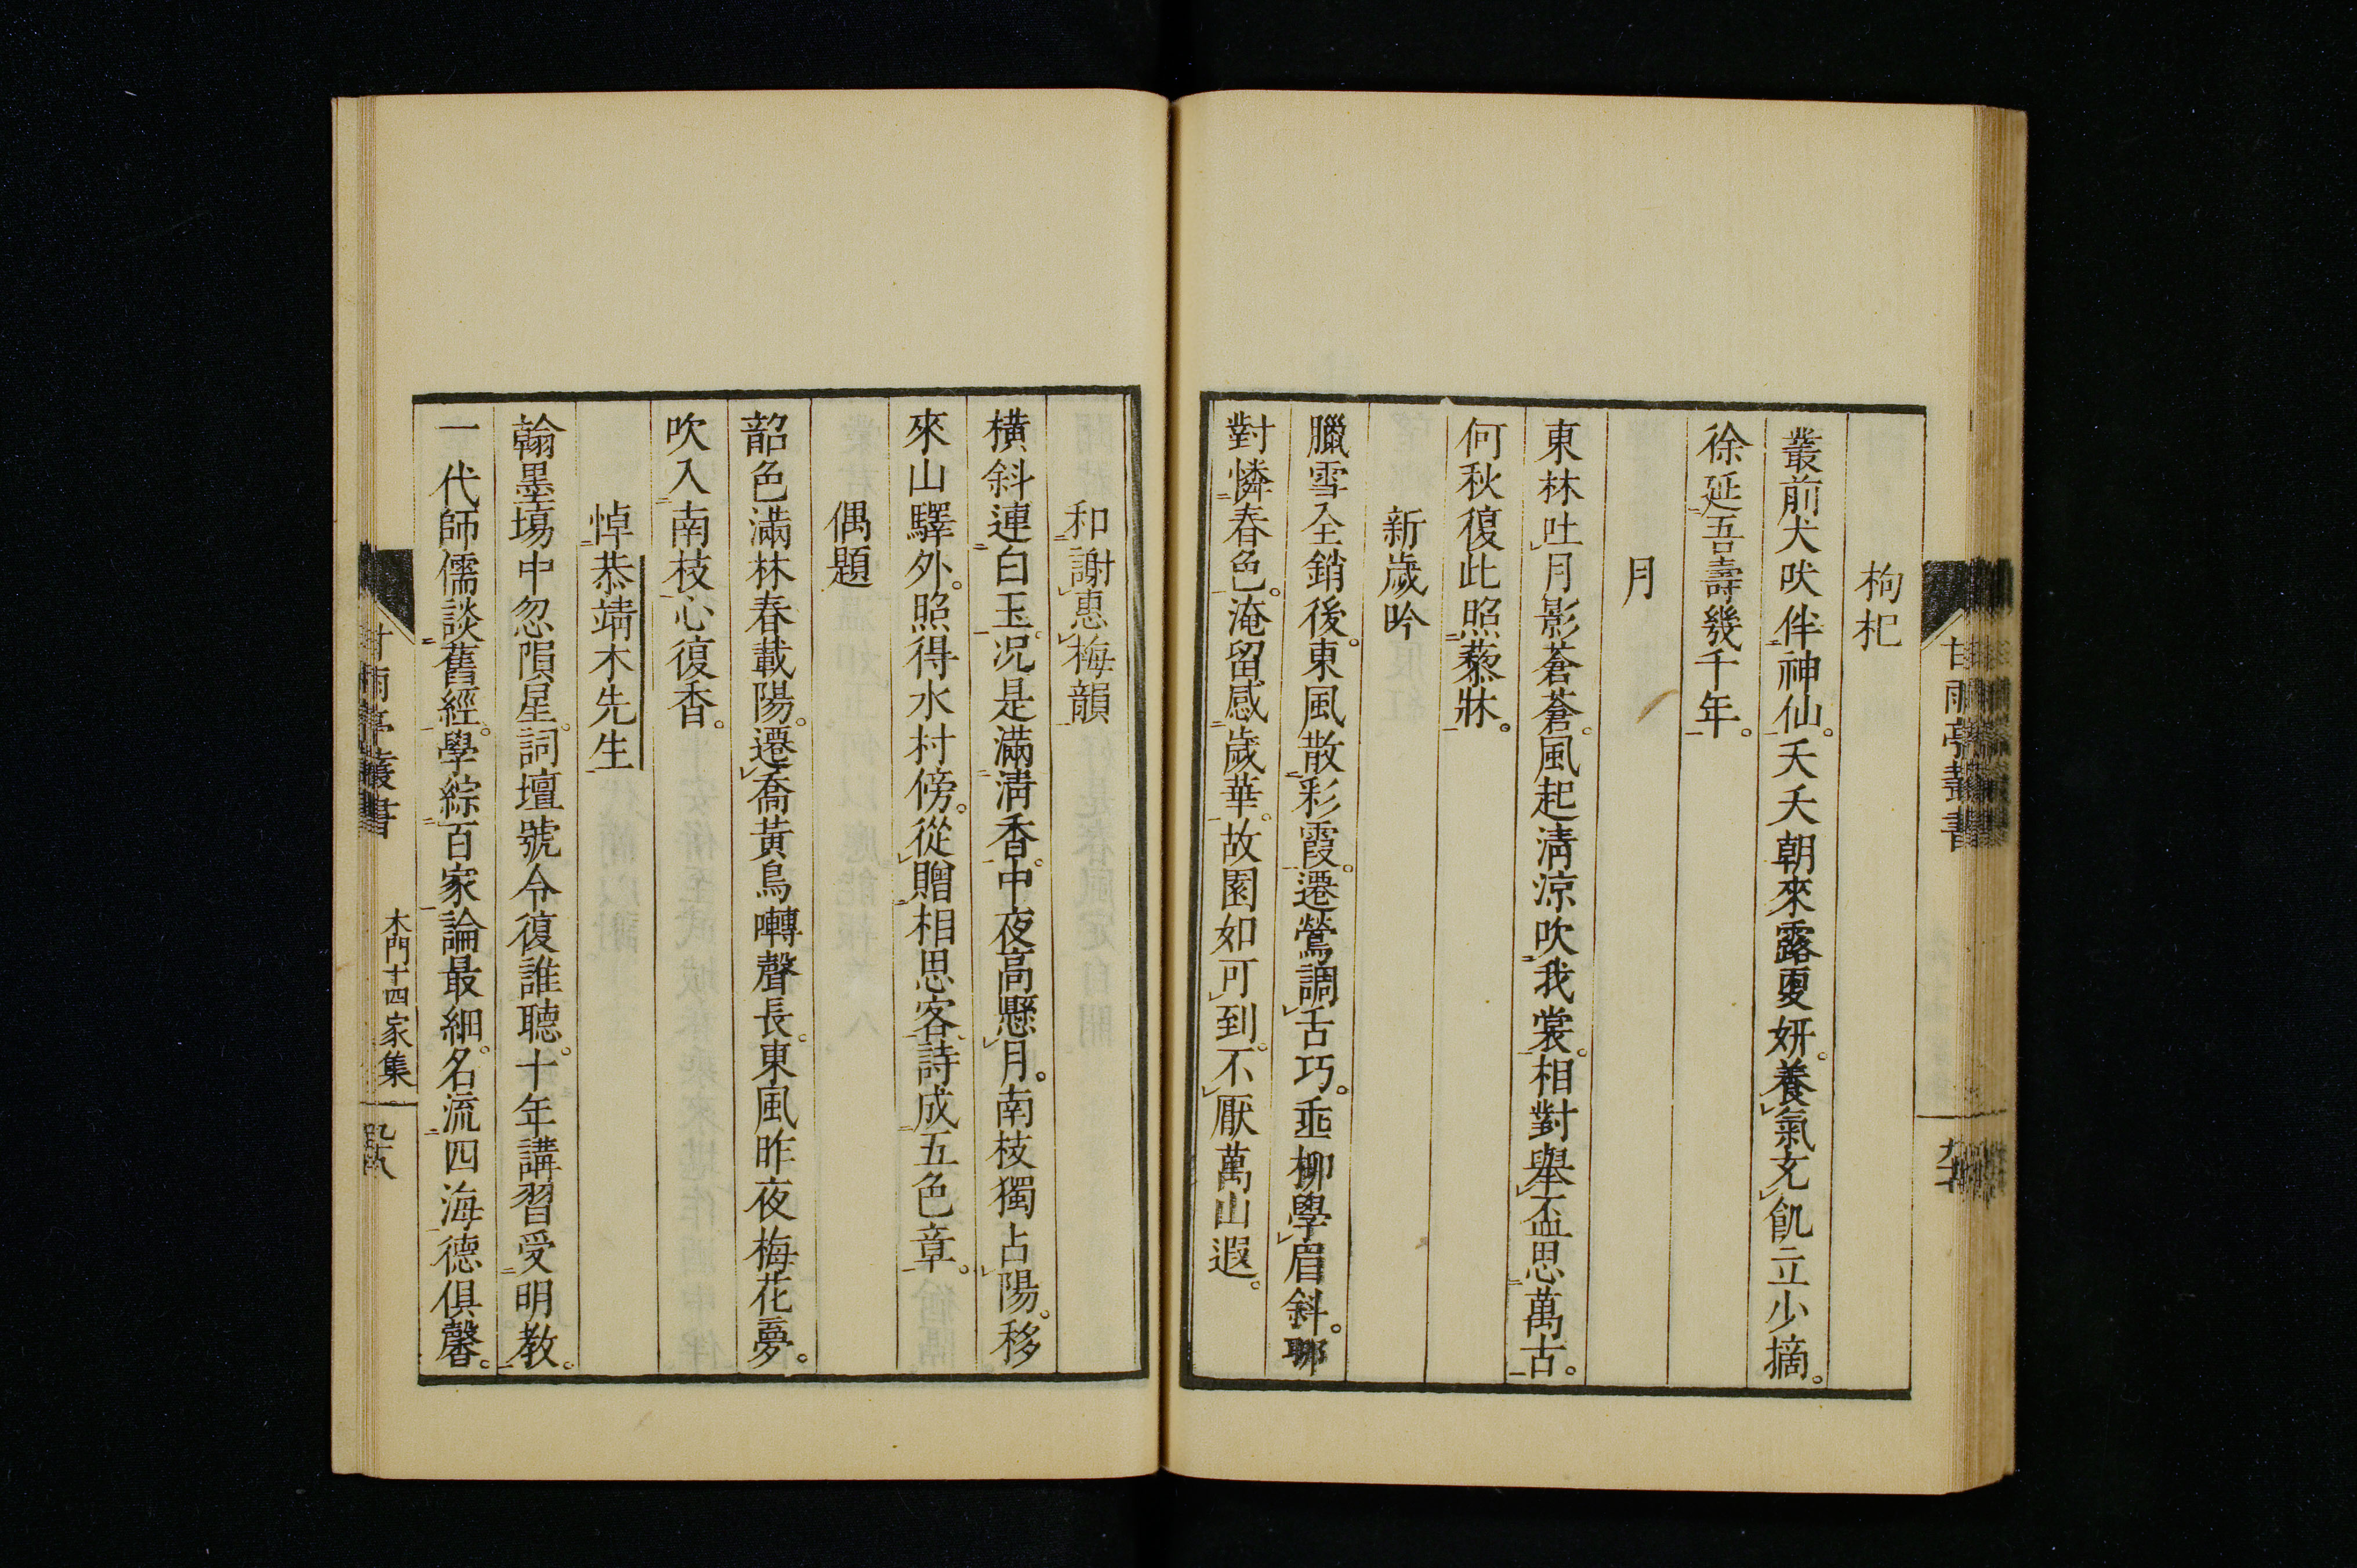 枸杞
叢前犬吠伴神仙。夭夭朝來露更妍。養氣充飢立少摘。
徐延吾壽幾千年。
月
東林吐月影蒼蒼。風起淸涼吹我裳。相對舉盃思萬古。
何秋復此照藜牀。
新歲吟
臘雪全銷後。東風散彩霞。遷鶯調舌巧。垂柳學眉斜。聊
對憐春色。淹留感歲華。故園如可到。不厭萬山遐。
甘雨亭叢書
和謝惠梅韻
橫斜連白玉。況是滿淸香。中夜高懸月。南枝獨占陽。移
來山驛外。照得水村傍。從贈相思客。詩成五色章。
偶題
韶色滿林春載陽。遷喬黃鳥囀聲長。東風昨夜梅花夢。
吹入南枝心復香。
悼恭靖木先生
翰墨場中忽隕星。詞壇號令復誰聽。十年講習受明教。
一代師儒談舊經。學綜百家論最細。名流四海德俱馨。
甘雨亭叢書 木門十四家集